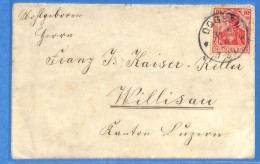 Wohlgeboren
Herrn
Franz Jos Kaiser-Keller
Willisau
Kanton Luzern
10 10